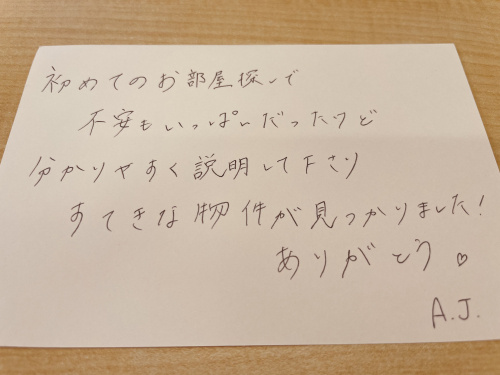 初めてのお部屋探しで
不安もいっぱいだったけど
分かりやすく説明して下さり
すてきな物件が見つかりました!
ありがとう♡
A.J.